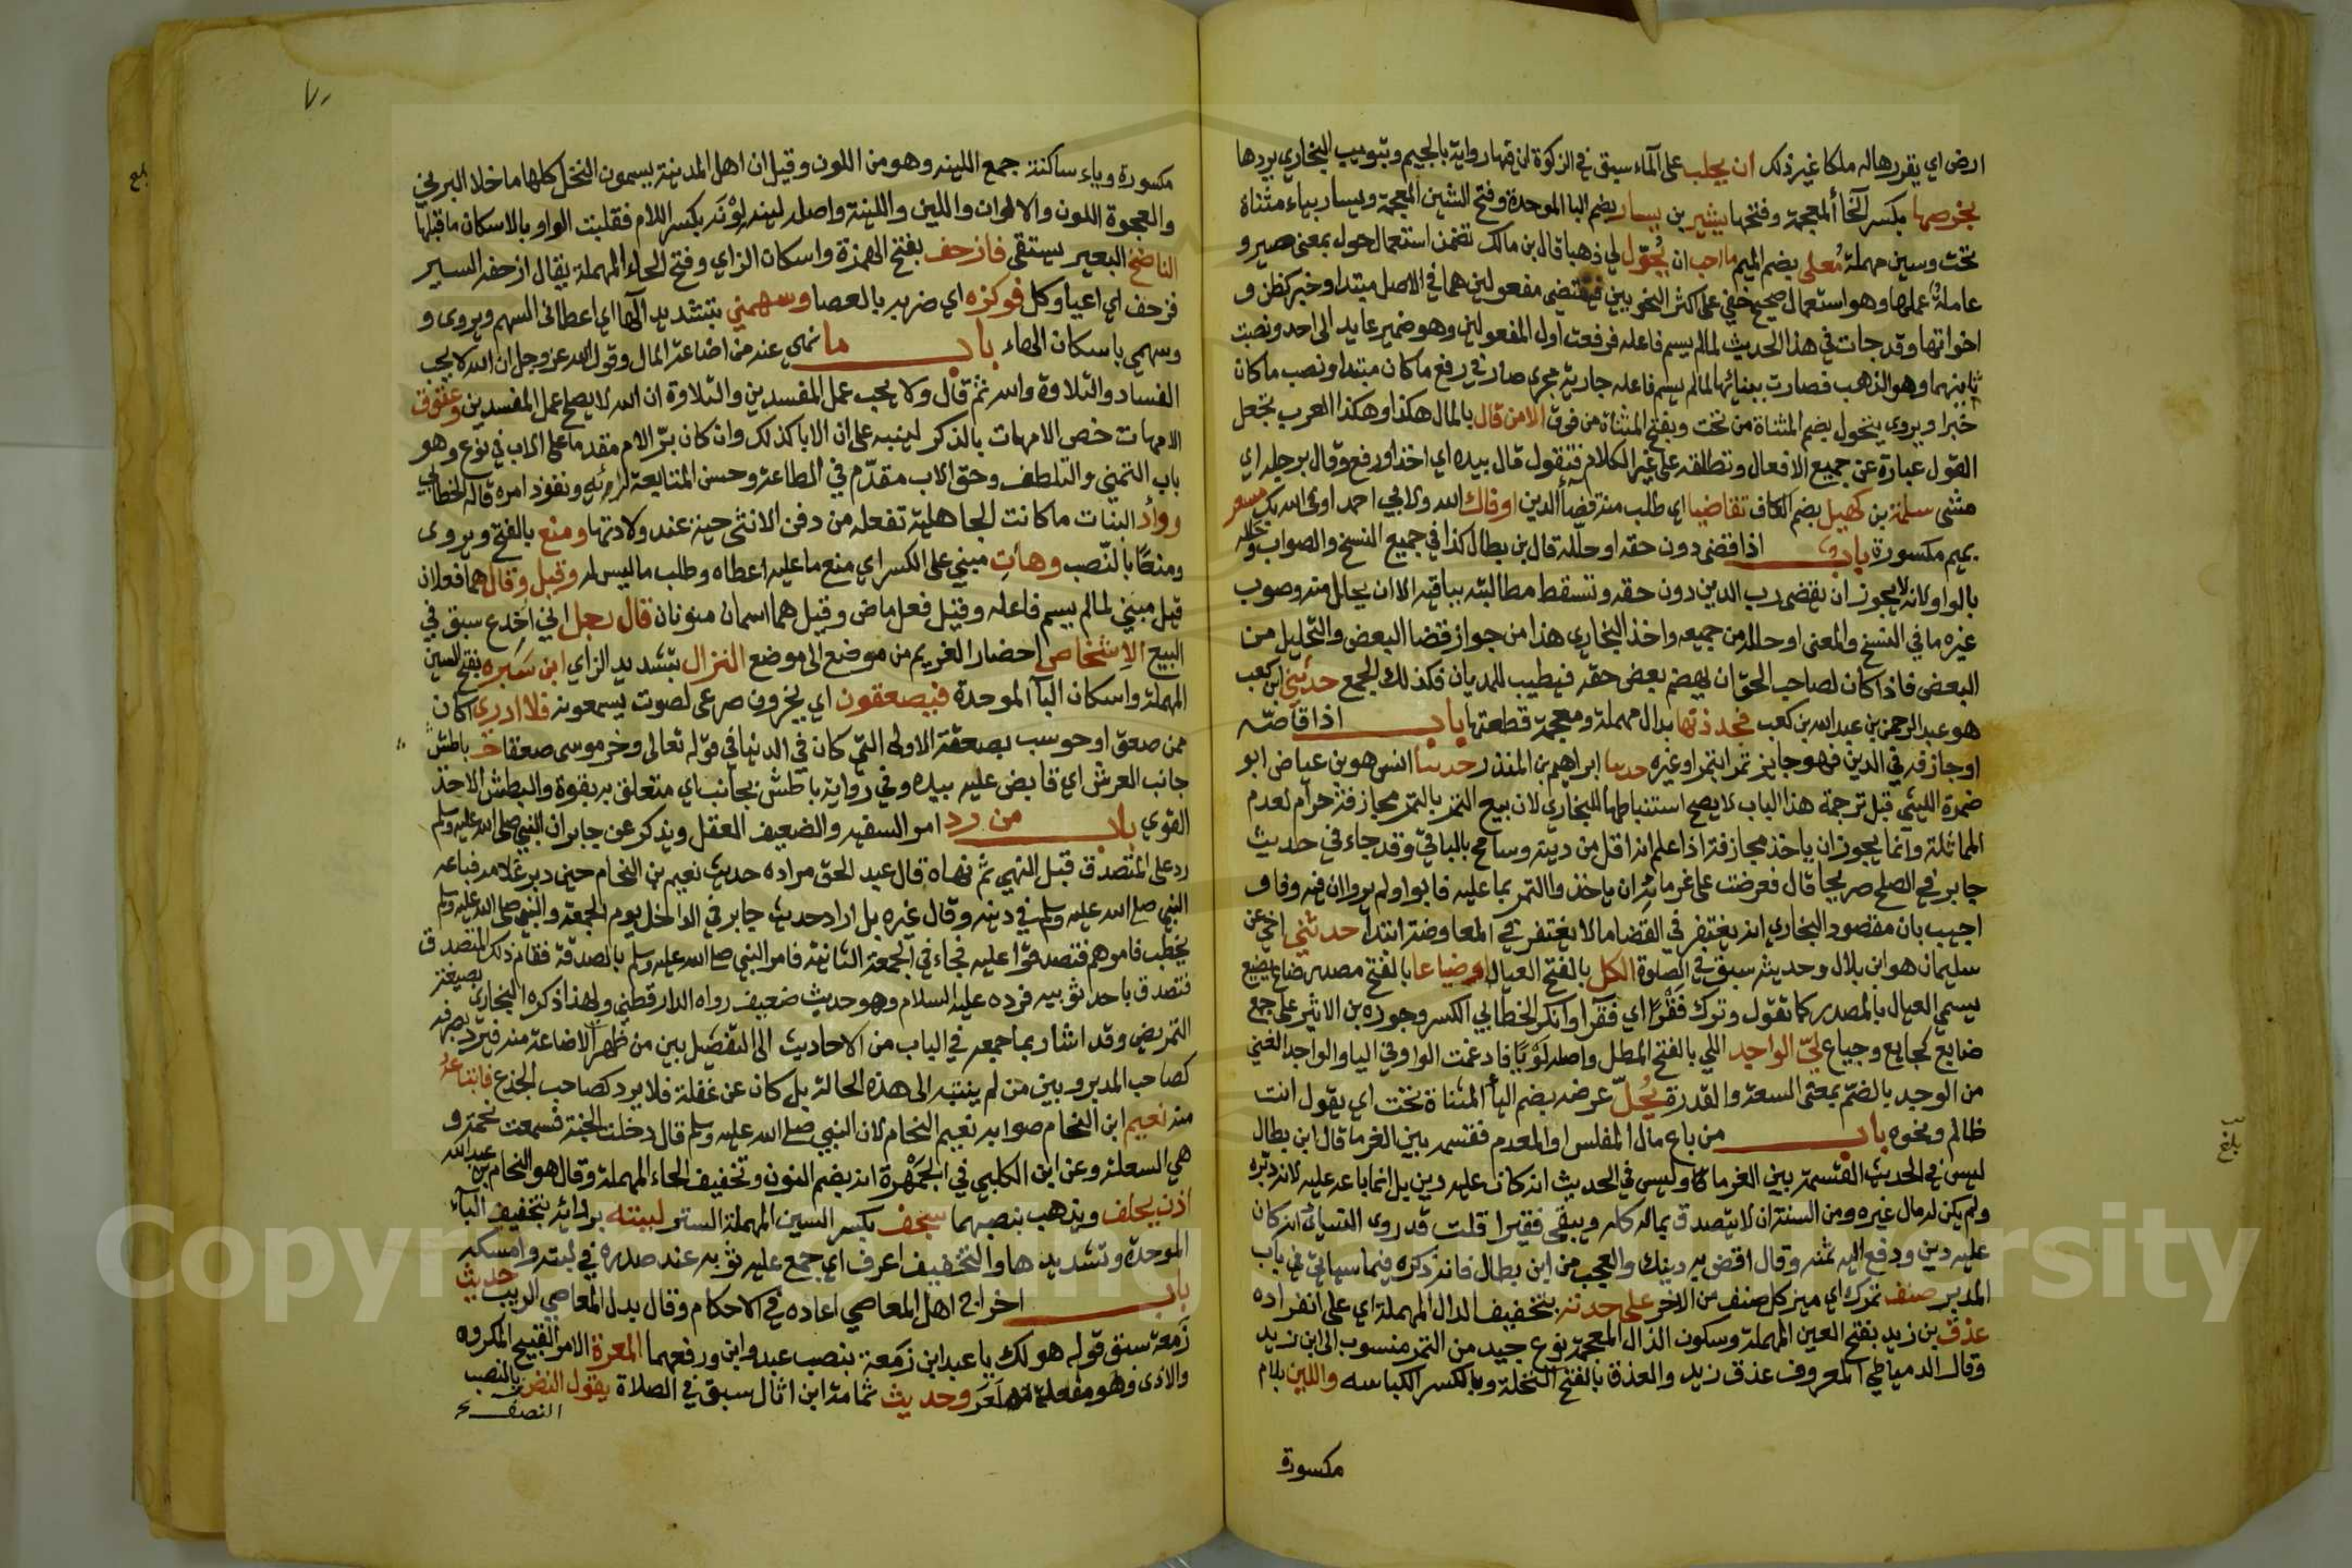 ارض اي يقرر هاله ملكا غير ذلك ان يحلب على الماء سبق في الزكوة ان فيها رواية بالجيم وتبويب البخاري يردها
بخرصها بكسر الخا المعجمة وفتحها بشير بن يسار بضم البا الموحدة وفتح الشين المعجمة ويسار بياء مثناة
تحت وسين مهملة مُعلى بضم الميم ما احب ان يُحوّل لي ذهبا قال بن مالك تضمن استعمال حول بمعنى صير و
عاملة عملها وهو استعمال صحيح خفي على اكثر النحويين فيقتضي مفعولين هما في الاصل مبتدا وخبر كظن و
اخواتها وقد جات في هذا الحديث لما لم يسم فاعله فرفعت اول المفعولين وهو ضمير عايد الى احد ونصبت
ثانيهما وهو الذهب فصارت ببنائها لما لم يسم فاعله جارية مجرى صار في رفع ما كان مبتدا ونصب ما كان
خبرا ويروي يتحول بضم المثناة من تحت وبفتح المثناة من فوق الا من قال بالمال هكذا وهكذا العرب تجعل
القول عبارة عن جميع الافعال وتطلقه على غير الكلام فتقول قال بيده اي اخذ او رفع وقال برجله اي
مشى سلمة بن كهيل بضم الكاف تقاضيا اي طلب منه قضا الدين اوفاك الله ولابي احمد اوفى الله بك مسعر
بميم مكسورة باب اذا قضى دون حقه او حلله قال بن بطال كذا في جميع النسخ والصواب وحلله
بالواو لانه لا يجوز ان يقضي رب الدين دون حقه وتسقط مطالبته بباقيه الا ان يحلل منه وصوب
غيره ما في النسخ والمعنى او حلله من جميعه واخذ البخاري هذا من جواز قضا البعض والتحليل من
البعض فاذا كان لصاحب الحق ان يهضم بعض حقه فيطيب للمديان فكذلك الجمع حدثني ابن كعب
هو عبد الرحمن بن عبد الله بن كعب فجددتها بدال مهملة ومعجمة قطعتها باب اذا قاصّه
او جازفه في الدين فهو جايز تمرا بتمر او غيره حدثنا ابراهيم بن المنذر حدثنا انس هو بن عياض ابو
ضمرة الليثي قبل ترجمة هذا الباب لا يصح استنباطها للبخاري لان بيع التمر بالتمر مجازفة حرام لعدم
المماثلة وانما يجوز ان ياخذ مجازفة اذا علم انه اقل من دينه وسامح بالباقي وقد جاء في حديث
جابر في الصلح صريحا قال فعرضت على غرمائه ان ياخذوا التمر بما عليه فابوا ولم يروا ان فيه وفاو
اجيب بان مقصود البخاري انه يغتفر في القضا ما لا يغتفر في المعاوضة ابتدا حدثني اخي عن
سليمان هو ابن بلال وحديثه سبق في الصلوة الكل بالفتح العيال او ضياعا بالفتح مصدر ضاع يضيع
يسمي العيال بالمصدر كما تقول وترك فَقْرًا اي فقرآ وانكر الخطابي الكسر وجوزه بن الاثير على جمع
ضايع كجايع وجياع ليّ الواجد اللي بالفتح المطل واصله لَوْيًا فادغمت الواو في اليا والواجد الغني
من الوجد بالضم بمعنى السعة والقدرة يُحلّ عرضه بضم اليا المثناة تحت اي يقول انت
ظالم ونحوه باب من باع مال المفلس او المعدم فقسمه بين الغرما قال ابن بطال
ليس في الحديث القسمة بين الغرماء وليس في الحديث انه كان عليه دين بل انما باعه عليه لانه دبره
ولم يكن له مال غيره ومن السنة ان لا يتصدق بماله كله ويبقى فقيرا قلت قد روى النسائي انه كان
عليه دين ودفع اليه ثمنه وقال اقض به دينك والعجب من ابن بطال فانه ذكره فيما سياتي في باب
المدبر صنف تمرك اي ميز كل صنف من الاخر على حدته بتخفيف الدال المهملة اي على انفراده
عذق بن زيد بفتح العين المهملة وسكون الذال المعجمة نوع جيد من التمر منسوب الى ابن زيد
وقال الدمياطي المعروف عذق زيد والعذق بالفتح النخلة وبالكسر الكباسه واللين بلام
مكسورة
مكسورة وياء ساكنة جمع اللينه وهو من اللون وقيل ان اهل المدينة يسمون النخل كلها ما خلا البرني
والعجوة اللون والالوان واللين واللينة واصله لينه لِوْنَه بكسر اللام فقلبت الواو بالاسكان ما قبلها
الناضح البعير يستقى فازحف بفتح الهمزة واسكان الزاي وفتح الحاء المهملة يقال ازحفه السير
فزحف اي اعيا وكل فوكزه اي ضربه بالعصا وسهمني بتشديد الها اي اعطاني السهم ويروى و
وسهمي باسكان الهاء باب ما نهي عنه من اضاعة المال وقول الله عز وجل ان الله لا يحب
الفساد والتلاوة والله ثم قال ولا يحب عمل المفسدين والتلاوة ان الله لا يصلح عمل المفسدين وعقوق
الامهات خص الامهات بالذكر لينبه على ان الابا كذلك وان كان بر الام مقدما على الاب في نوع وهو
باب التمني والتلطف وحق الاب مقدّم في الطاعة وحسن المتابعة لرايه ونفوذ امره قاله الخطابي
ووأد البنات ما كانت الجاهلية تفعله من دفن الانثى حية عند ولادتها ومنع بالفتح ويروى
ومنعًا بالنصب وهاتِ مبني على الكسر اي منع ما عليه اعطاه وطلب ما ليس له وقيل وقال هما فعلان
قيل مبني لما لم يسم فاعله وقيل فعل ماض وقيل هما اسمان منونان قال رجل اني اُخدع سبق في
البيع الاشخاص احضار الغريم من موضع الى موضع النزال بتشديد الزاي ابن سَبره بفتح السين
المهملة واسكان البا الموحدة فيصعقون اي يخرون صرعى لصوت يسمعونه فلا ادري اكان
ممن صعق او حوسب بصعقة الاولى التي كان في الدنيا في قوله تعالى وخر موسى صعقا باطش
جانب العرش اي قابض عليه بيده وفي رواية باطش بجانب اي متعلق به بقوة والبطش الاخذ
القوي باب من رد امر السفيه والضعيف العقل ويذكر عن جابر ان النبي صلى الله عليه وسلم
رد على المتصدق قبل النهي ثم نهاه قال عبد الحق مراده حديث نعيم بن النحام حين دبر غلامه فباعه
النبي صلى الله عليه وسلم في دينه وقال غيره بل اراد حديث جابر في الداخل يوم الجمعة والنبي صلى الله عليه وسلم
يخطب فامرهم فتصدقوا عليه فجاء في الجمعة الثانية فامر النبي صلى الله عليه وسلم بالصدقة فقام ذلك المتصدق
فتصدق باحد ثوبيه فرده عليه السلام وهو حديث ضعيف رواه الدارقطني ولهذا ذكره البخاري بصيغة
التمريض وقد اشار بما جمعه في الباب من الاحاديث الى التفصيل بين من ظهر الاضاعة منه فيرد تصرفه
كصاحب المدبر وبين من لم ينته الى هذه الحالة بل كان عن غفلة فلا يرد كصاحب الجذع فابتاعه
منه نعيم ابن النحام صوابه نعيم النحام لان النبي صلى الله عليه وسلم قال دخلت الجنة فسمعت نحمة و
هي السعلة وعن ابن الكلبي في الجَمْهَرة انه بضم النون وتخفيف الحاء المهملة وقال هو النحام بن عبد الله
اذن يحلف ويذهب بنصبهما سجف بكسر السين المهملة الستر لببته بتخفيف الباء
الموحدة وتشديدها والتخفيف اعرف اي جمع عليه ثوبه عند صدره في لبته وامسكه
باب اخراج اهل المعاصي اعاده في الاحكام وقال بدل المعاصي الريب حديث
زمعة سبق قوله هو لك يا عبد ابن زمعة بنصب عبد وابن ورفعهما المعرة الامر القبيح المكروه
والاذى وهو مفعلة من العَرّ وحديث ثمامة ابن اثال سبق في الصلاة يقول النضر بالنصب
النصف
بلغ
بلغ
٧٠
Copyright © King Saud University